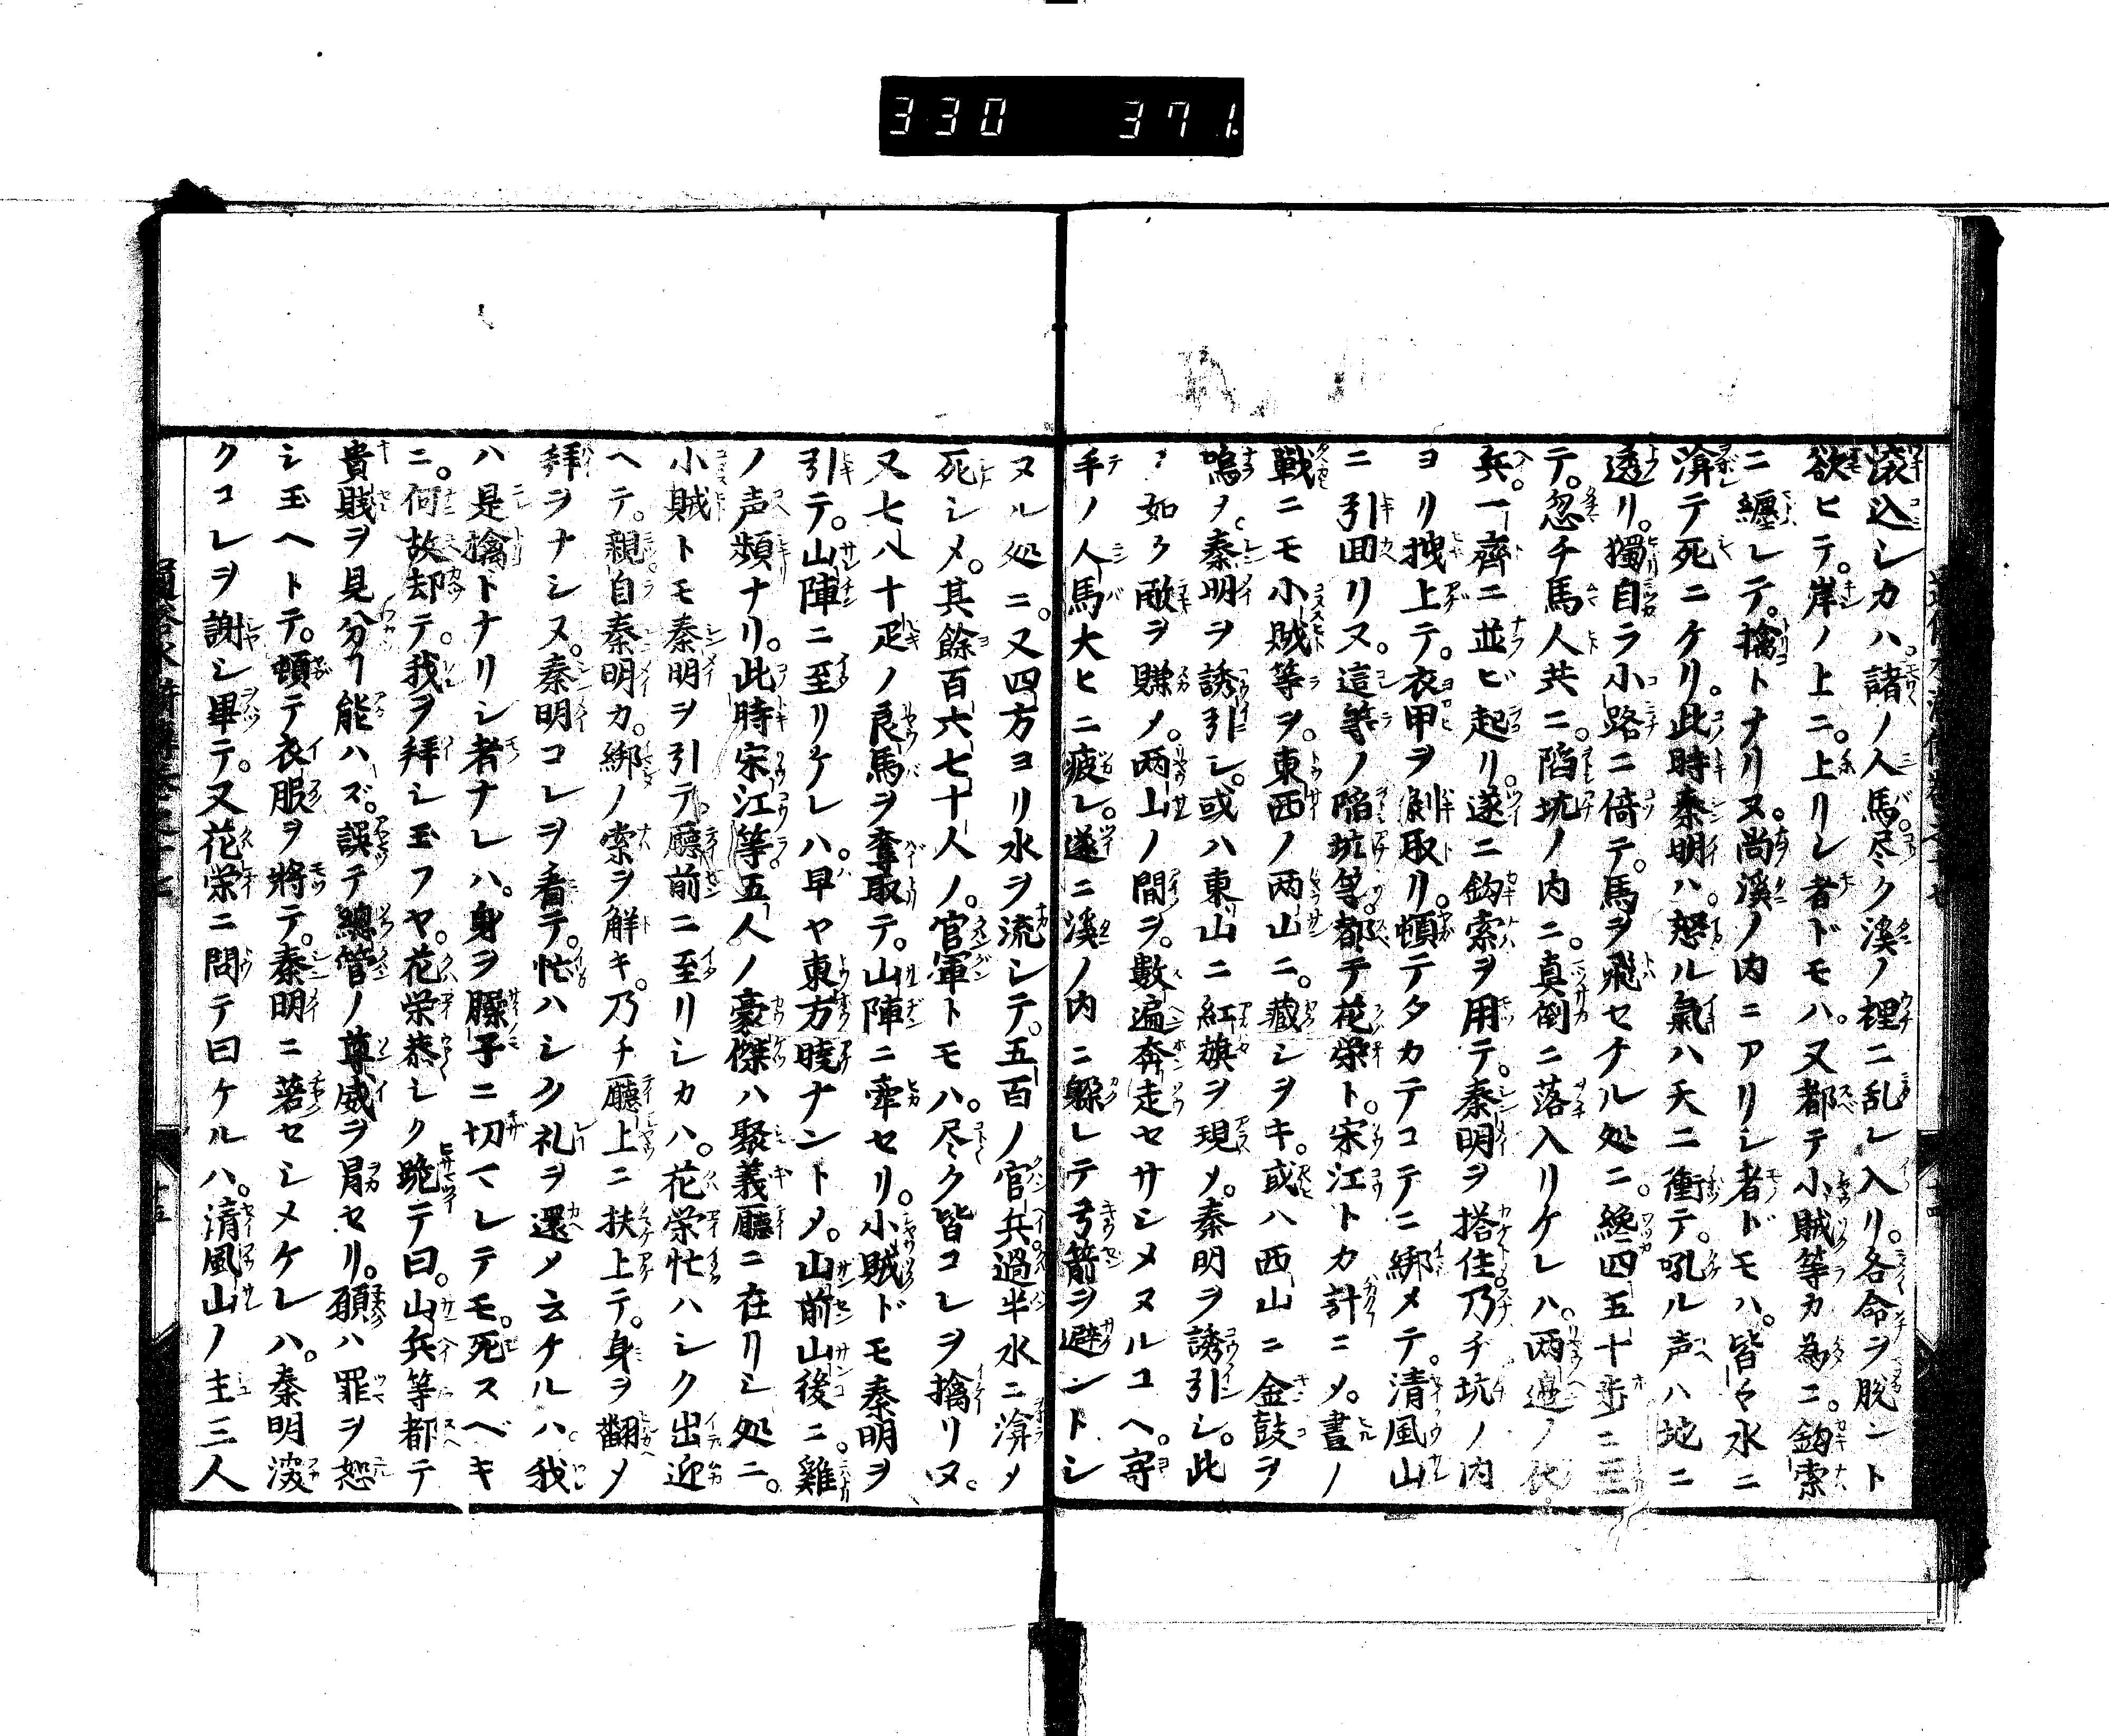 330 371.
滾込シカハ。諸ノ人馬。尽ク溪ノ裡ニ乱レ入リ。各命ヲ脱ント
欲ヒテ。岸ノ上ニ。上リシ者ドモハ。又都テ小賊等カ為ニ。鈎索
ニ纏レテ。擒トナリヌ。尚溪ノ内ニアリシ者ドモハ。皆々水ニ
渰テ死ニケリ。此時秦明ハ。怒ル氣ハ天ニ衝テ。吼ル声ハ地ニ
透リ。獨自ラ小路ニ倚テ。馬ヲ飛セナル処ニ。纔四五十歩ニ三
テ。忽チ馬人共ニ。陷坑ノ内ニ。真倒ニ落入リケレハ。両邉ノ伏
兵。一齊ニ並ビ起リ。遂ニ鈎索ヲ用テ。秦明ヲ搭住。乃チ坑ノ内
ヨリ拽上テ。衣甲ヲ剝取リ。頓テタカテコテニ綁メテ。清風山
ニ引囬リヌ。這等ノ陷坑等。都テ花栄ト。宋江トカ計ニメ。晝ノ
戦ニモ小賊等ヲ。東西ノ両山ニ。藏シヲキ。或ハ西山ニ金鼓ヲ
鳴メ。秦明ヲ誘引シ。或ハ東山ニ紅旗ヲ現メ。秦明ヲ誘引シ。此
〻如ク敵ヲ賺メ。両山ノ間ヲ。數遍奔走セサシメヌルユヘ。寄
手ノ人馬大ヒニ疲レ。遂ニ溪ノ内ニ躲レテ弓箭ヲ避ントシ
ヌル処ニ。又四方ヨリ水ヲ流シテ。五百ノ官兵過半水ニ渰メ
死シメ。其餘百六七十人ノ。官軍トモハ。尽ク皆コレヲ擒リヌ。
又七八十疋ノ良馬ヲ奪取テ。山陣ニ牽セリ。小賊ドモ秦明ヲ
引テ。山陣ニ至リケレハ。早ヤ東方曉ナントメ。山前山後ニ。雞
ノ声頻ナリ。此時宋江等五人ノ豪傑ハ聚義廳ニ在リシ処ニ。
小賊トモ秦明ヲ引テ。廳前ニ至リシカハ。花栄忙ハシク出迎
ヘテ。親自秦明カ。綁ノ索ヲ解キ。乃チ廳上ニ扶上テ。身ヲ翻メ
拜ヲナシヌ。秦明コレヲ看テ。忙ハシク礼ヲ還メ云ケルハ。我
ハ是擒トナリシ者ナレハ。身ヲ臊子ニ切マレテモ。死スベキ
ニ。何故却テ。我ヲ拜シ玉フヤ。花栄恭シク跪テ曰。山兵等都テ
貴賎ヲ見分ヿ能ハズ。誤テ總管ノ尊威ヲ冐セリ。願ハ罪ヲ恕
シ玉ヘトテ。頓テ衣服ヲ將テ。秦明ニ著セシメケレハ。秦明深
クコレヲ謝シ畢テ。又花栄ニ問テ曰ケルハ。清風山ノ主三人